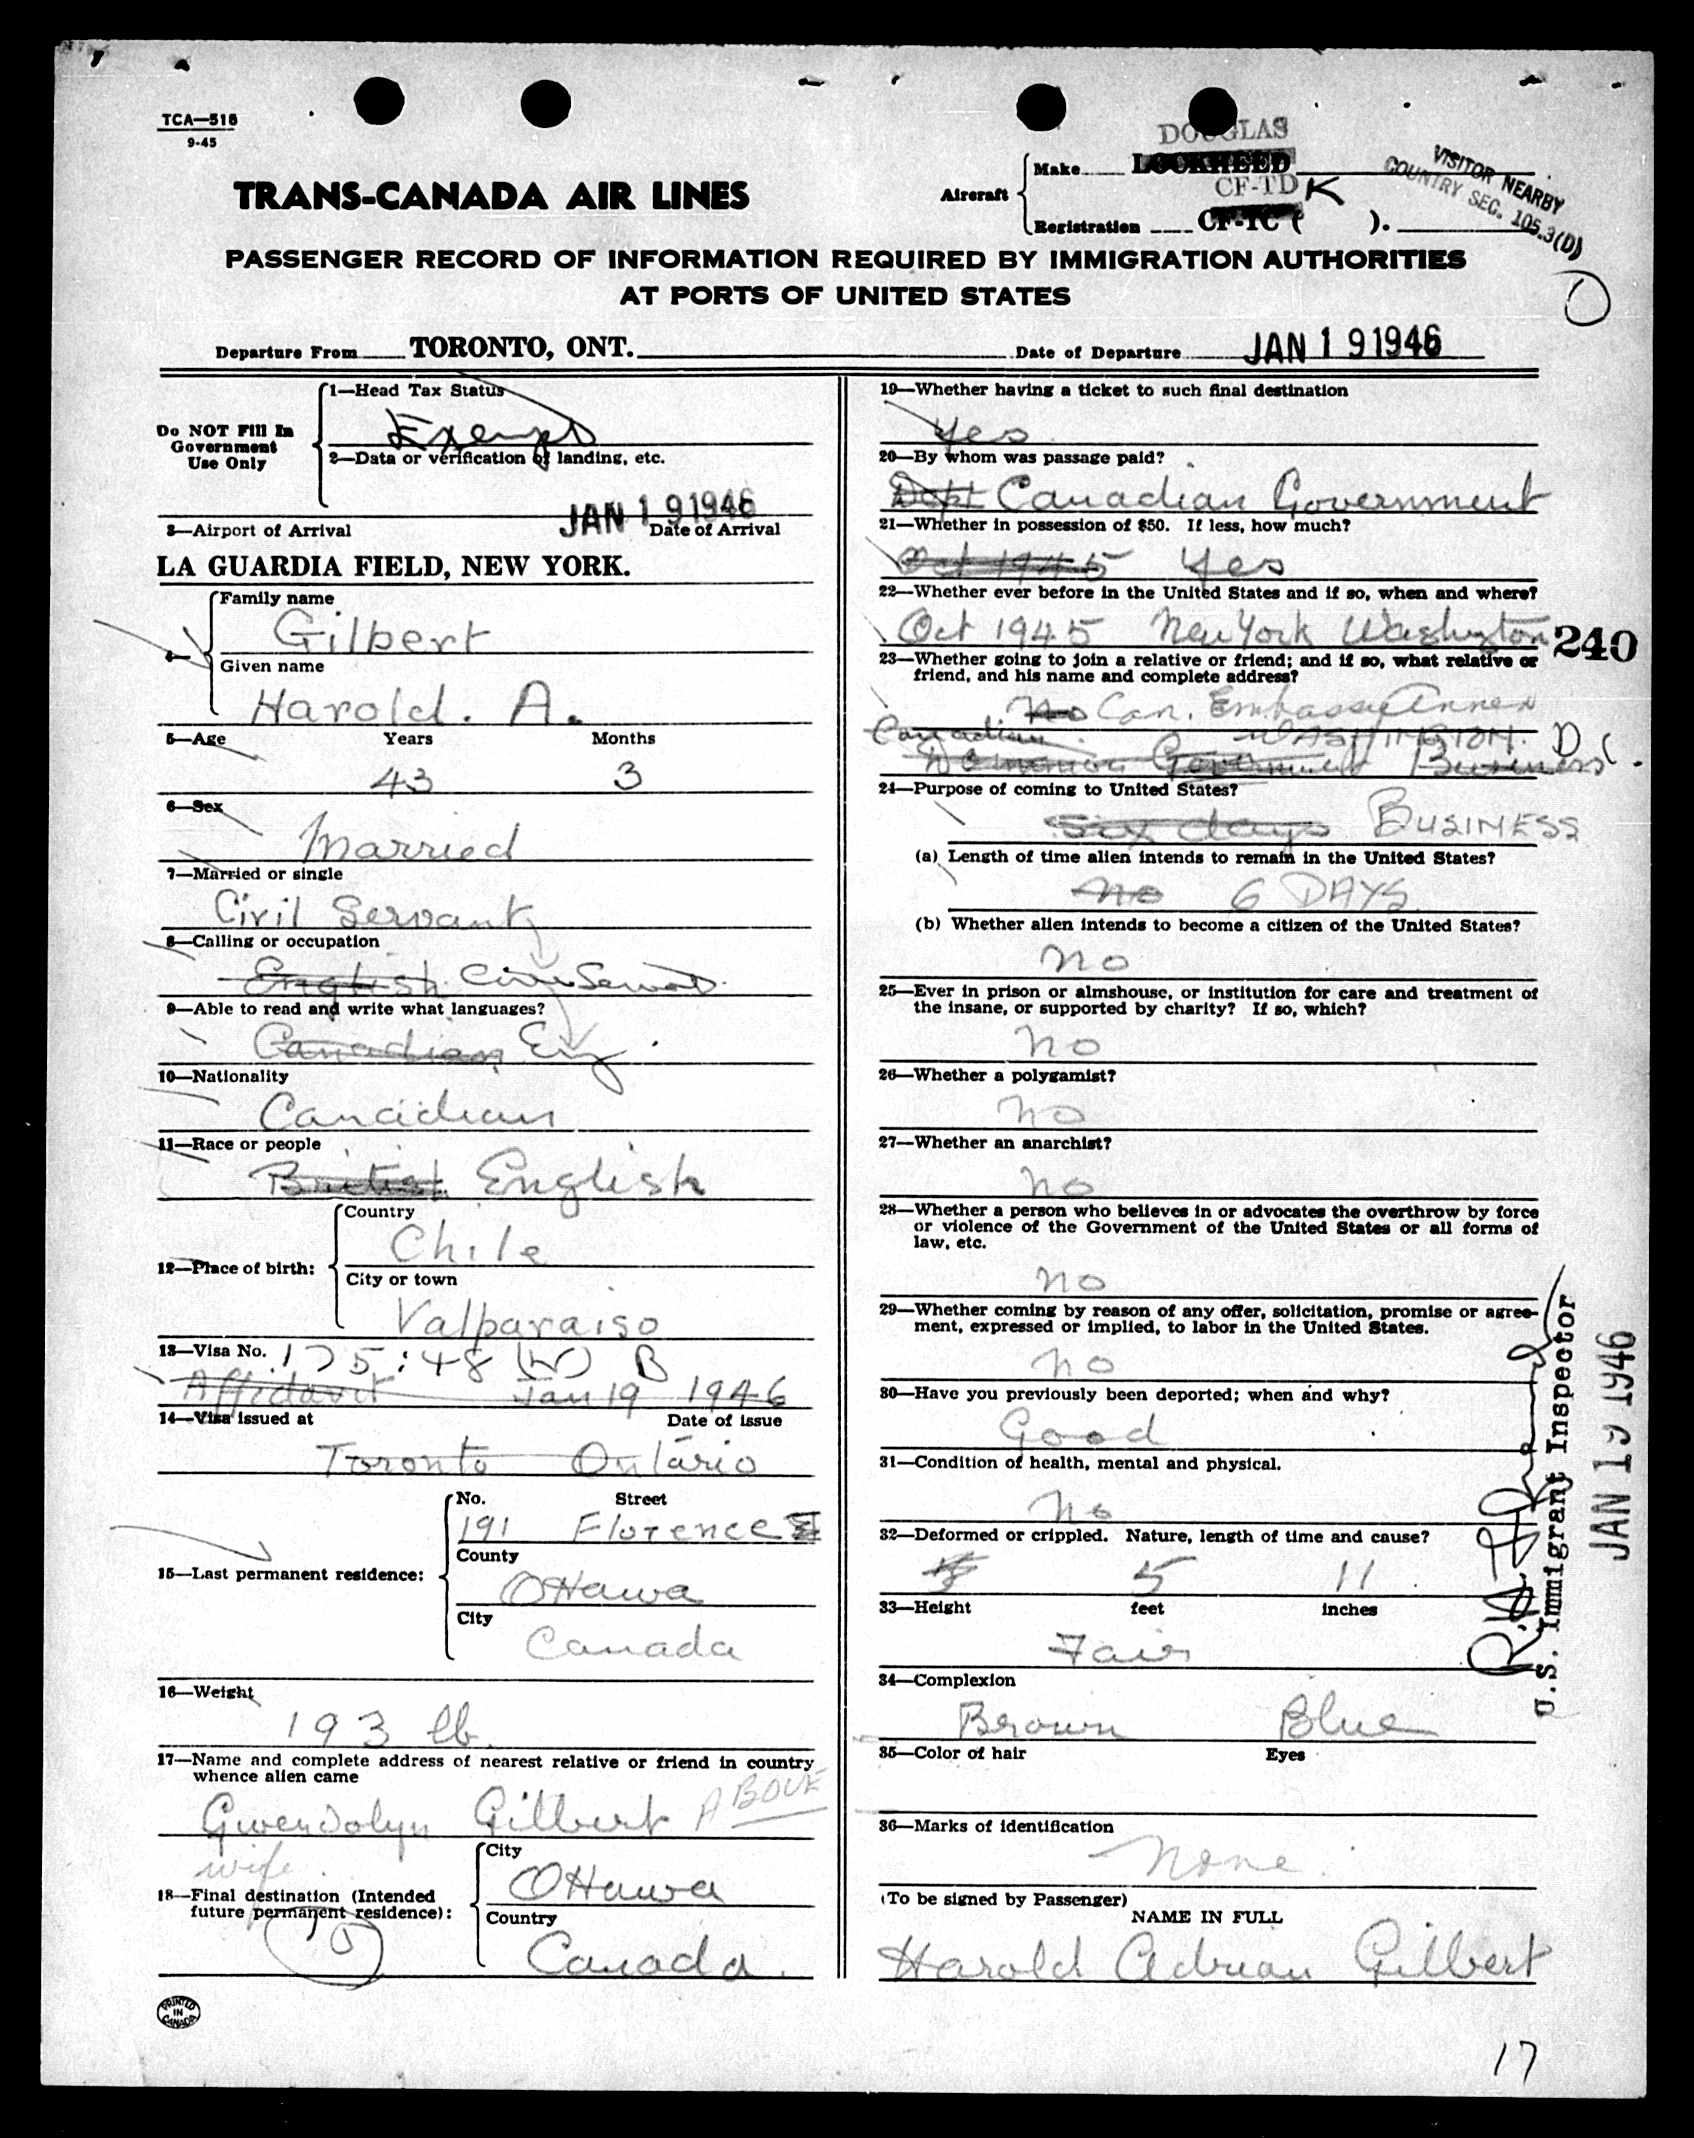 TCA—518
9-45
DOUGLAS
Aircraft
Make LOCKHEED
CF-TD K
Registration CF-TC ( ).
VISITOR NEARBY
COUNTRY SEC. 105.3(D)
TRANS-CANADA AIR LINES
PASSENGER RECORD OF INFORMATION REQUIRED BY IMMIGRATION AUTHORITIES
AT PORTS OF UNITED STATES
Departure From TORONTO, ONT.
Date of Departure JAN 19 1946
Do NOT Fill In
Government
Use Only
1—Head Tax Status
Exempt
2—Data or verification of landing, etc.
JAN 19 1946
3—Airport of Arrival Date of Arrival
LA GUARDIA FIELD, NEW YORK.
4—
Family name
Gilbert
Given name
Harold. A.
5—Age Years Months
43 3
6—Sex
Married
7—Married or single
Civil Servant
8—Calling or occupation
English Civil Servant
9—Able to read and write what languages?
Canadian Eng
10—Nationality
Canadian
11—Race or people
British English
12—Place of birth:
Country
Chile
City or town
Valparaiso
13—Visa No. 175:48 (W) B
Affidavit Jan 19 1946
14—Visa issued at Date of issue
Toronto Ontario
15—Last permanent residence:
No. Street
191 Florence
County
Ottawa
City
Canada
16—Weight
193 lb.
17—Name and complete address of nearest relative or friend in country
whence alien came
Gwendolyn Gilbert ABOVE
wife.
18—Final destination (Intended
future permanent residence):
City
Ottawa
Country
Canada.
PRINTED
IN
CANADA
19—Whether having a ticket to such final destination
Yes
20—By whom was passage paid?
Dept Canadian Government
21—Whether in possession of $50. If less, how much?
Oct 1945 Yes
22—Whether ever before in the United States and if so, when and where?
Oct 1945 New York Washington
240
23—Whether going to join a relative or friend; and if so, what relative or
friend, and his name and complete address?
No Can. Embassy Annex
Canadian WASHINGTON. D C.
Dominion Government Business
24—Purpose of coming to United States?
Six days BUSINESS
(a) Length of time alien intends to remain in the United States?
No 6 DAYS
(b) Whether alien intends to become a citizen of the United States?
No
25—Ever in prison or almshouse, or institution for care and treatment of
the insane, or supported by charity? If so, which?
No
26—Whether a polygamist?
No
27—Whether an anarchist?
No
28—Whether a person who believes in or advocates the overthrow by force
or violence of the Government of the United States or all forms of
law, etc.
No
29—Whether coming by reason of any offer, solicitation, promise or agree-
ment, expressed or implied, to labor in the United States.
No
30—Have you previously been deported; when and why?
Good
31—Condition of health, mental and physical.
No
32—Deformed or crippled. Nature, length of time and cause?
5 11
33—Height feet inches
Fair
34—Complexion
Brown Blue
35—Color of hair Eyes
36—Marks of identification
None.
(To be signed by Passenger)
NAME IN FULL
Harold Adrian Gilbert
U.S. Immigrant Inspector
JAN 19 1946
17